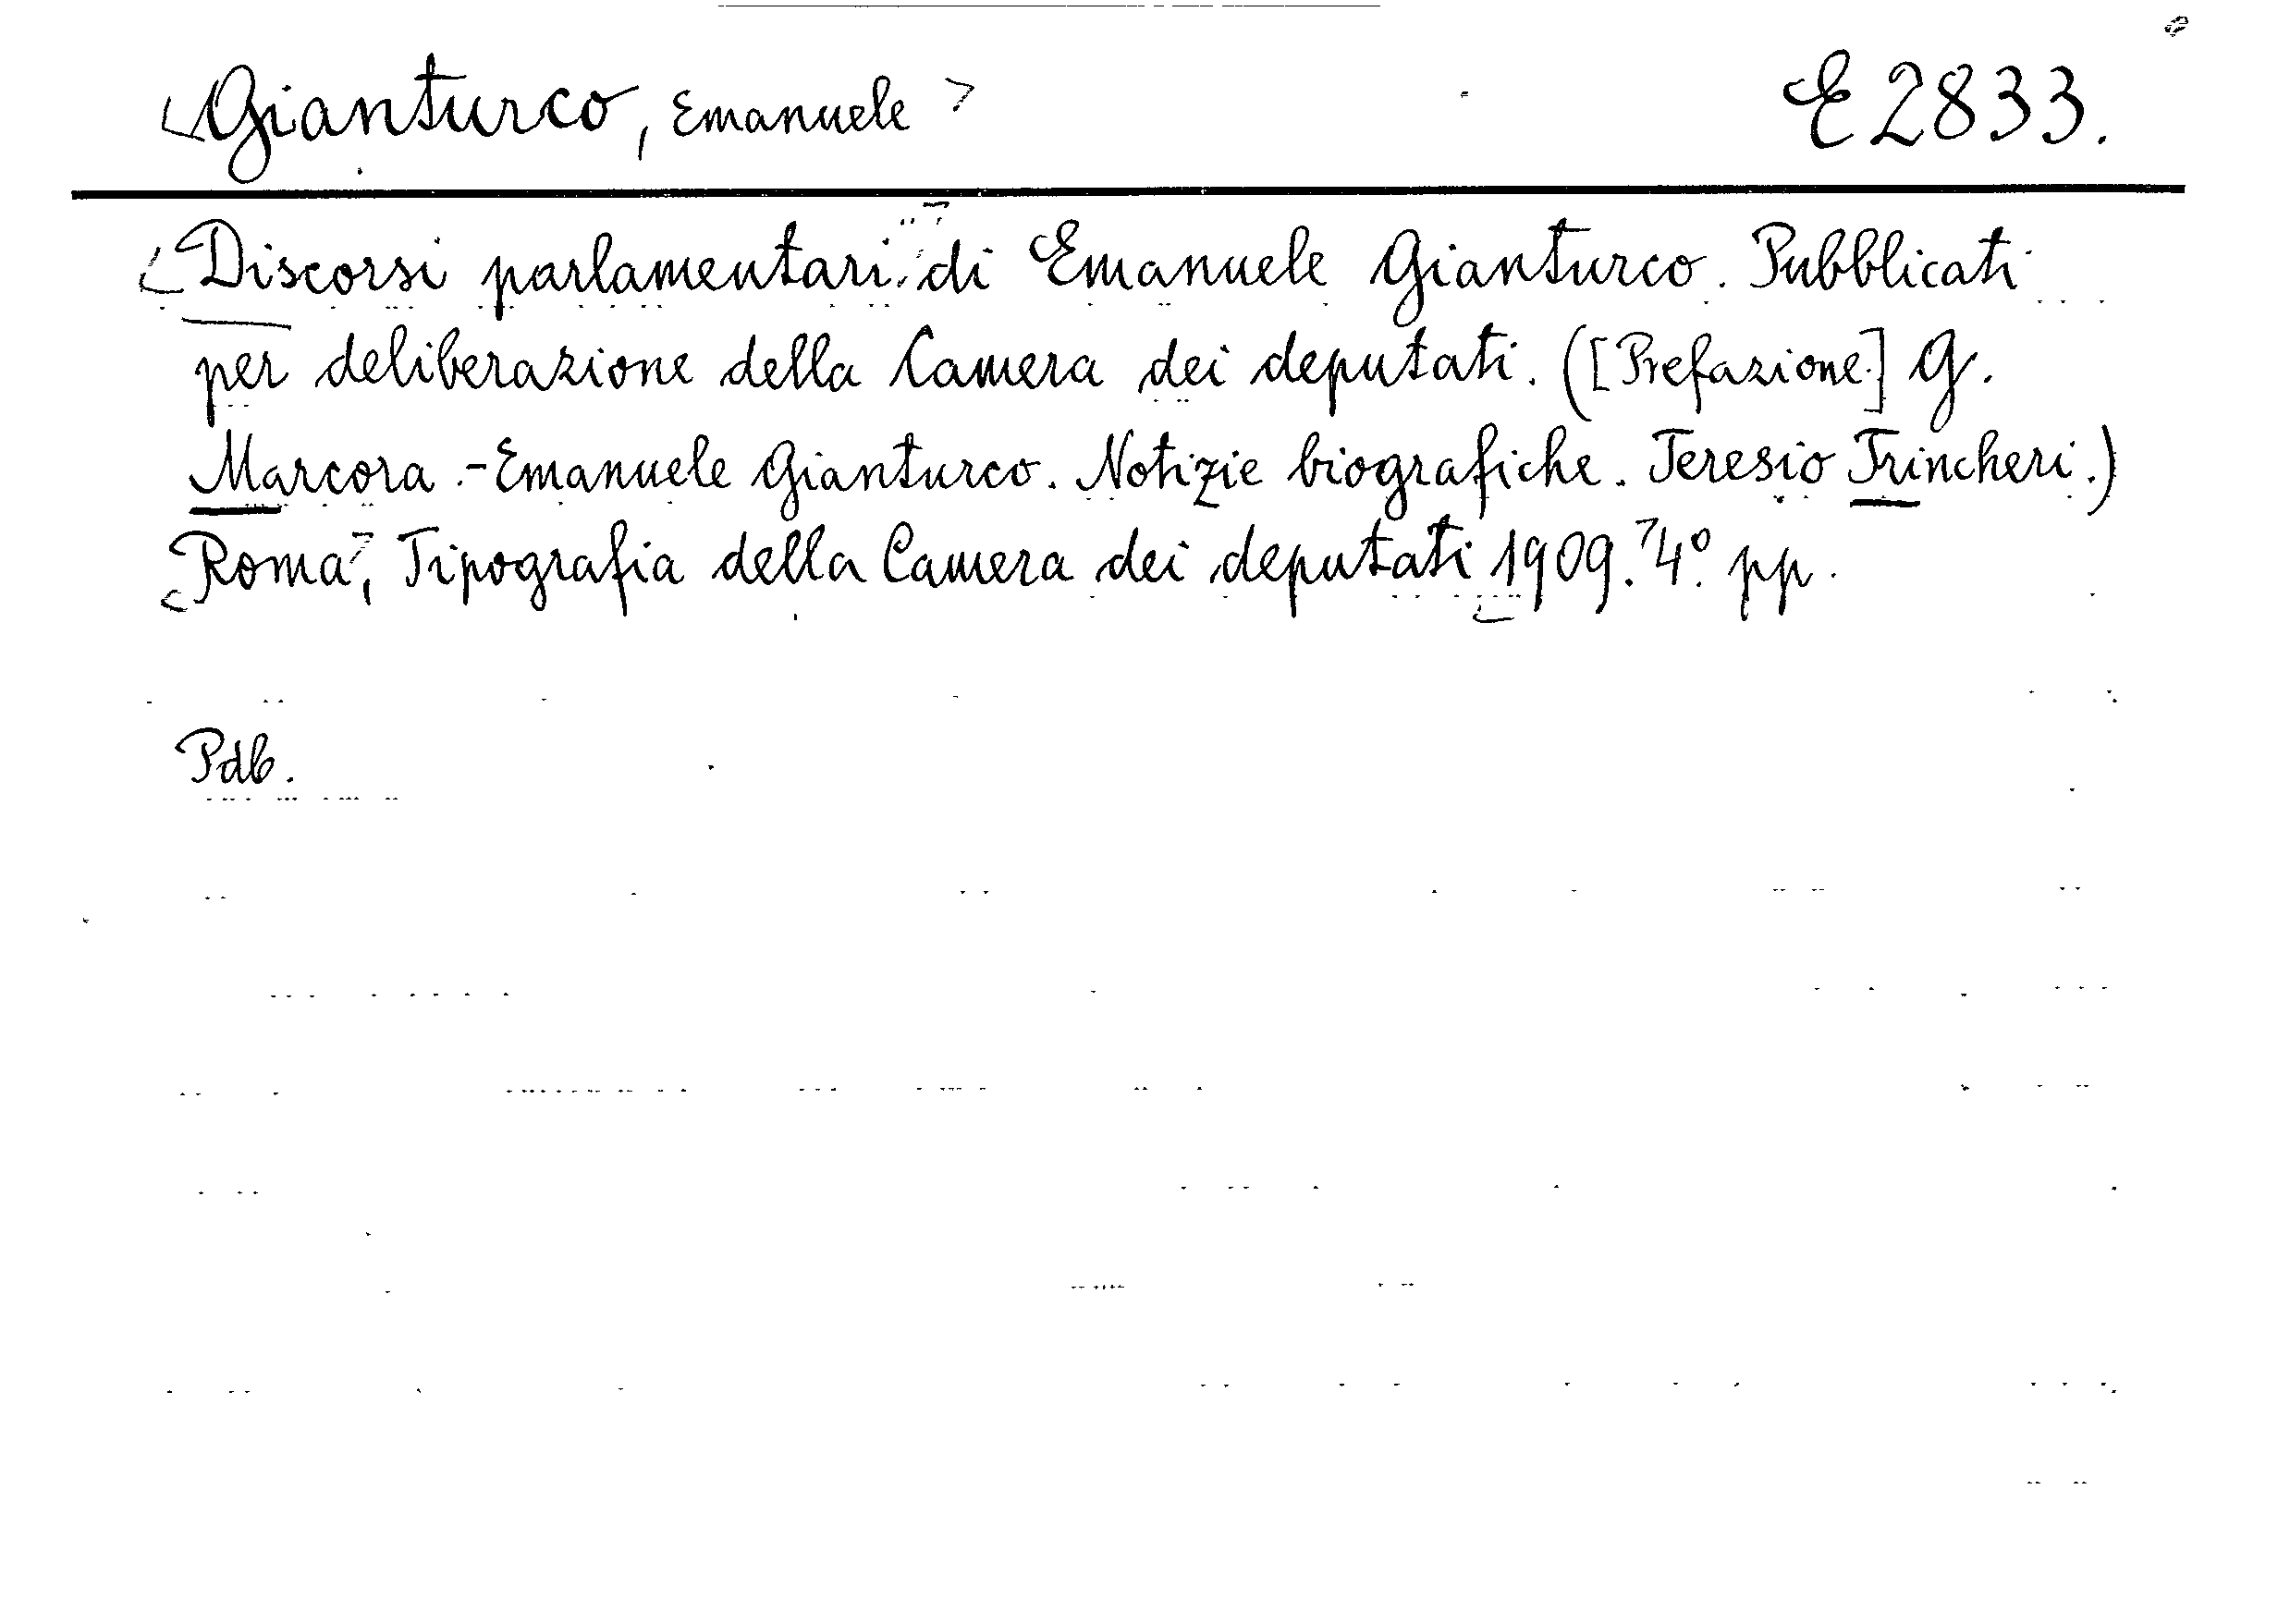 Gianturco, Emanuele E 2833.
Discorsi parlamentari di Emanuele Gianturco. Pubblicati
per deliberazione della Camera dei deputati. ([Prefazione] G.
Marcora. - Emanuele Gianturco. Notizie biografiche. Teresio Trincheri.)
Roma, Tipografia della Camera dei deputati 1909. 4° pp.
Pdb.